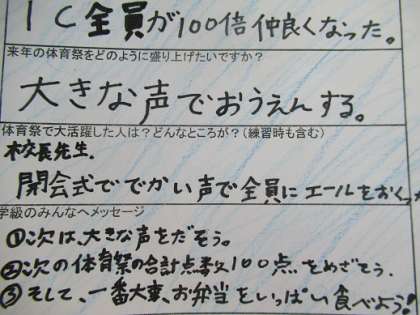 1C全員が100倍仲良くなった。
来年の体育祭をどのように盛り上げたいですか?
大きな声でおうえんする。
体育祭で大活躍した人は?どんなところが?(練習時も含む)
校長先生.
開会式ででかい声で全員にエールをおくっ
学級のみんなへメッセージ
①次は、大きな声をだそう。
②次の体育祭の合計点数100点をめざそう.
③そして、一番大事、お弁当をいっぱい食べよう!